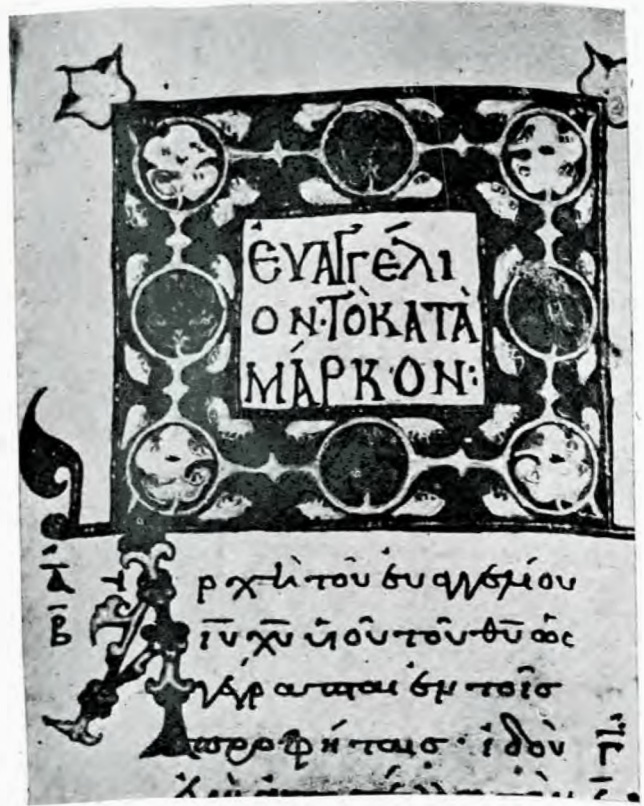 ἐυαγγέλι
ον· τὸ κατὰ
μάρκον:
Ἀρχὴ τοῦ ευαγγελίου
ιυ χυ υἱοῦ τοῦ θυ ὡς
γέγραπται ἐν τοῖς
προφήταις· ἰδοὺ